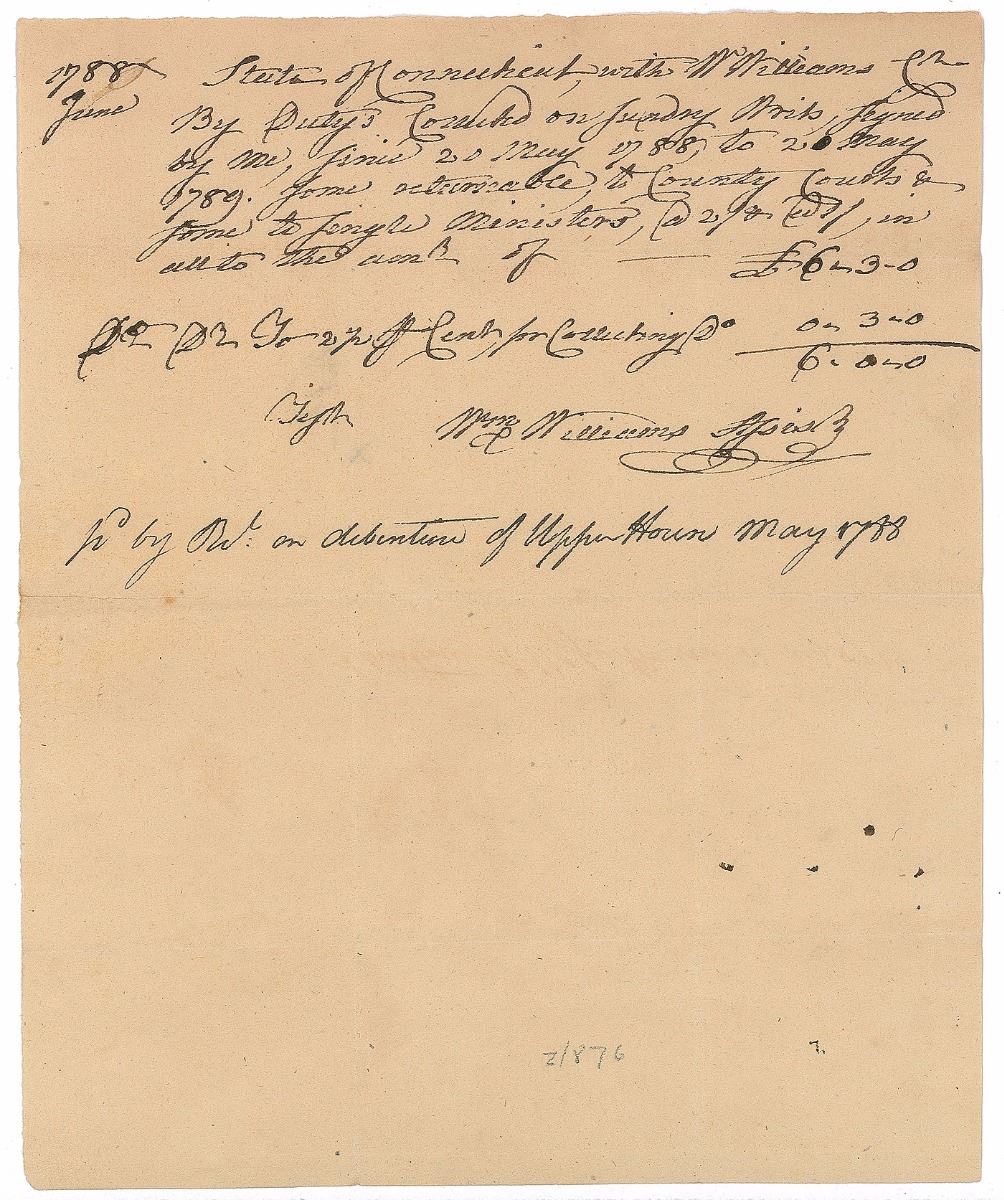 1788
June
State of Connecticut, with Wm Williams Cr
By Dutys Collectd on sundry Writs, signed
by me, since 20 May 1788, to 20 May
1789. some returnable, to County Courts &
some to single Ministers, @ 2/ & @ 1/, in
all to the amt of £6-3-0
Dr To 2½ pr Cent, for Collecting Do 0-3-0
6-0-0
Test Wm Williams Assist
pd by Rd. on debenture of Upper House May 1788
2/876